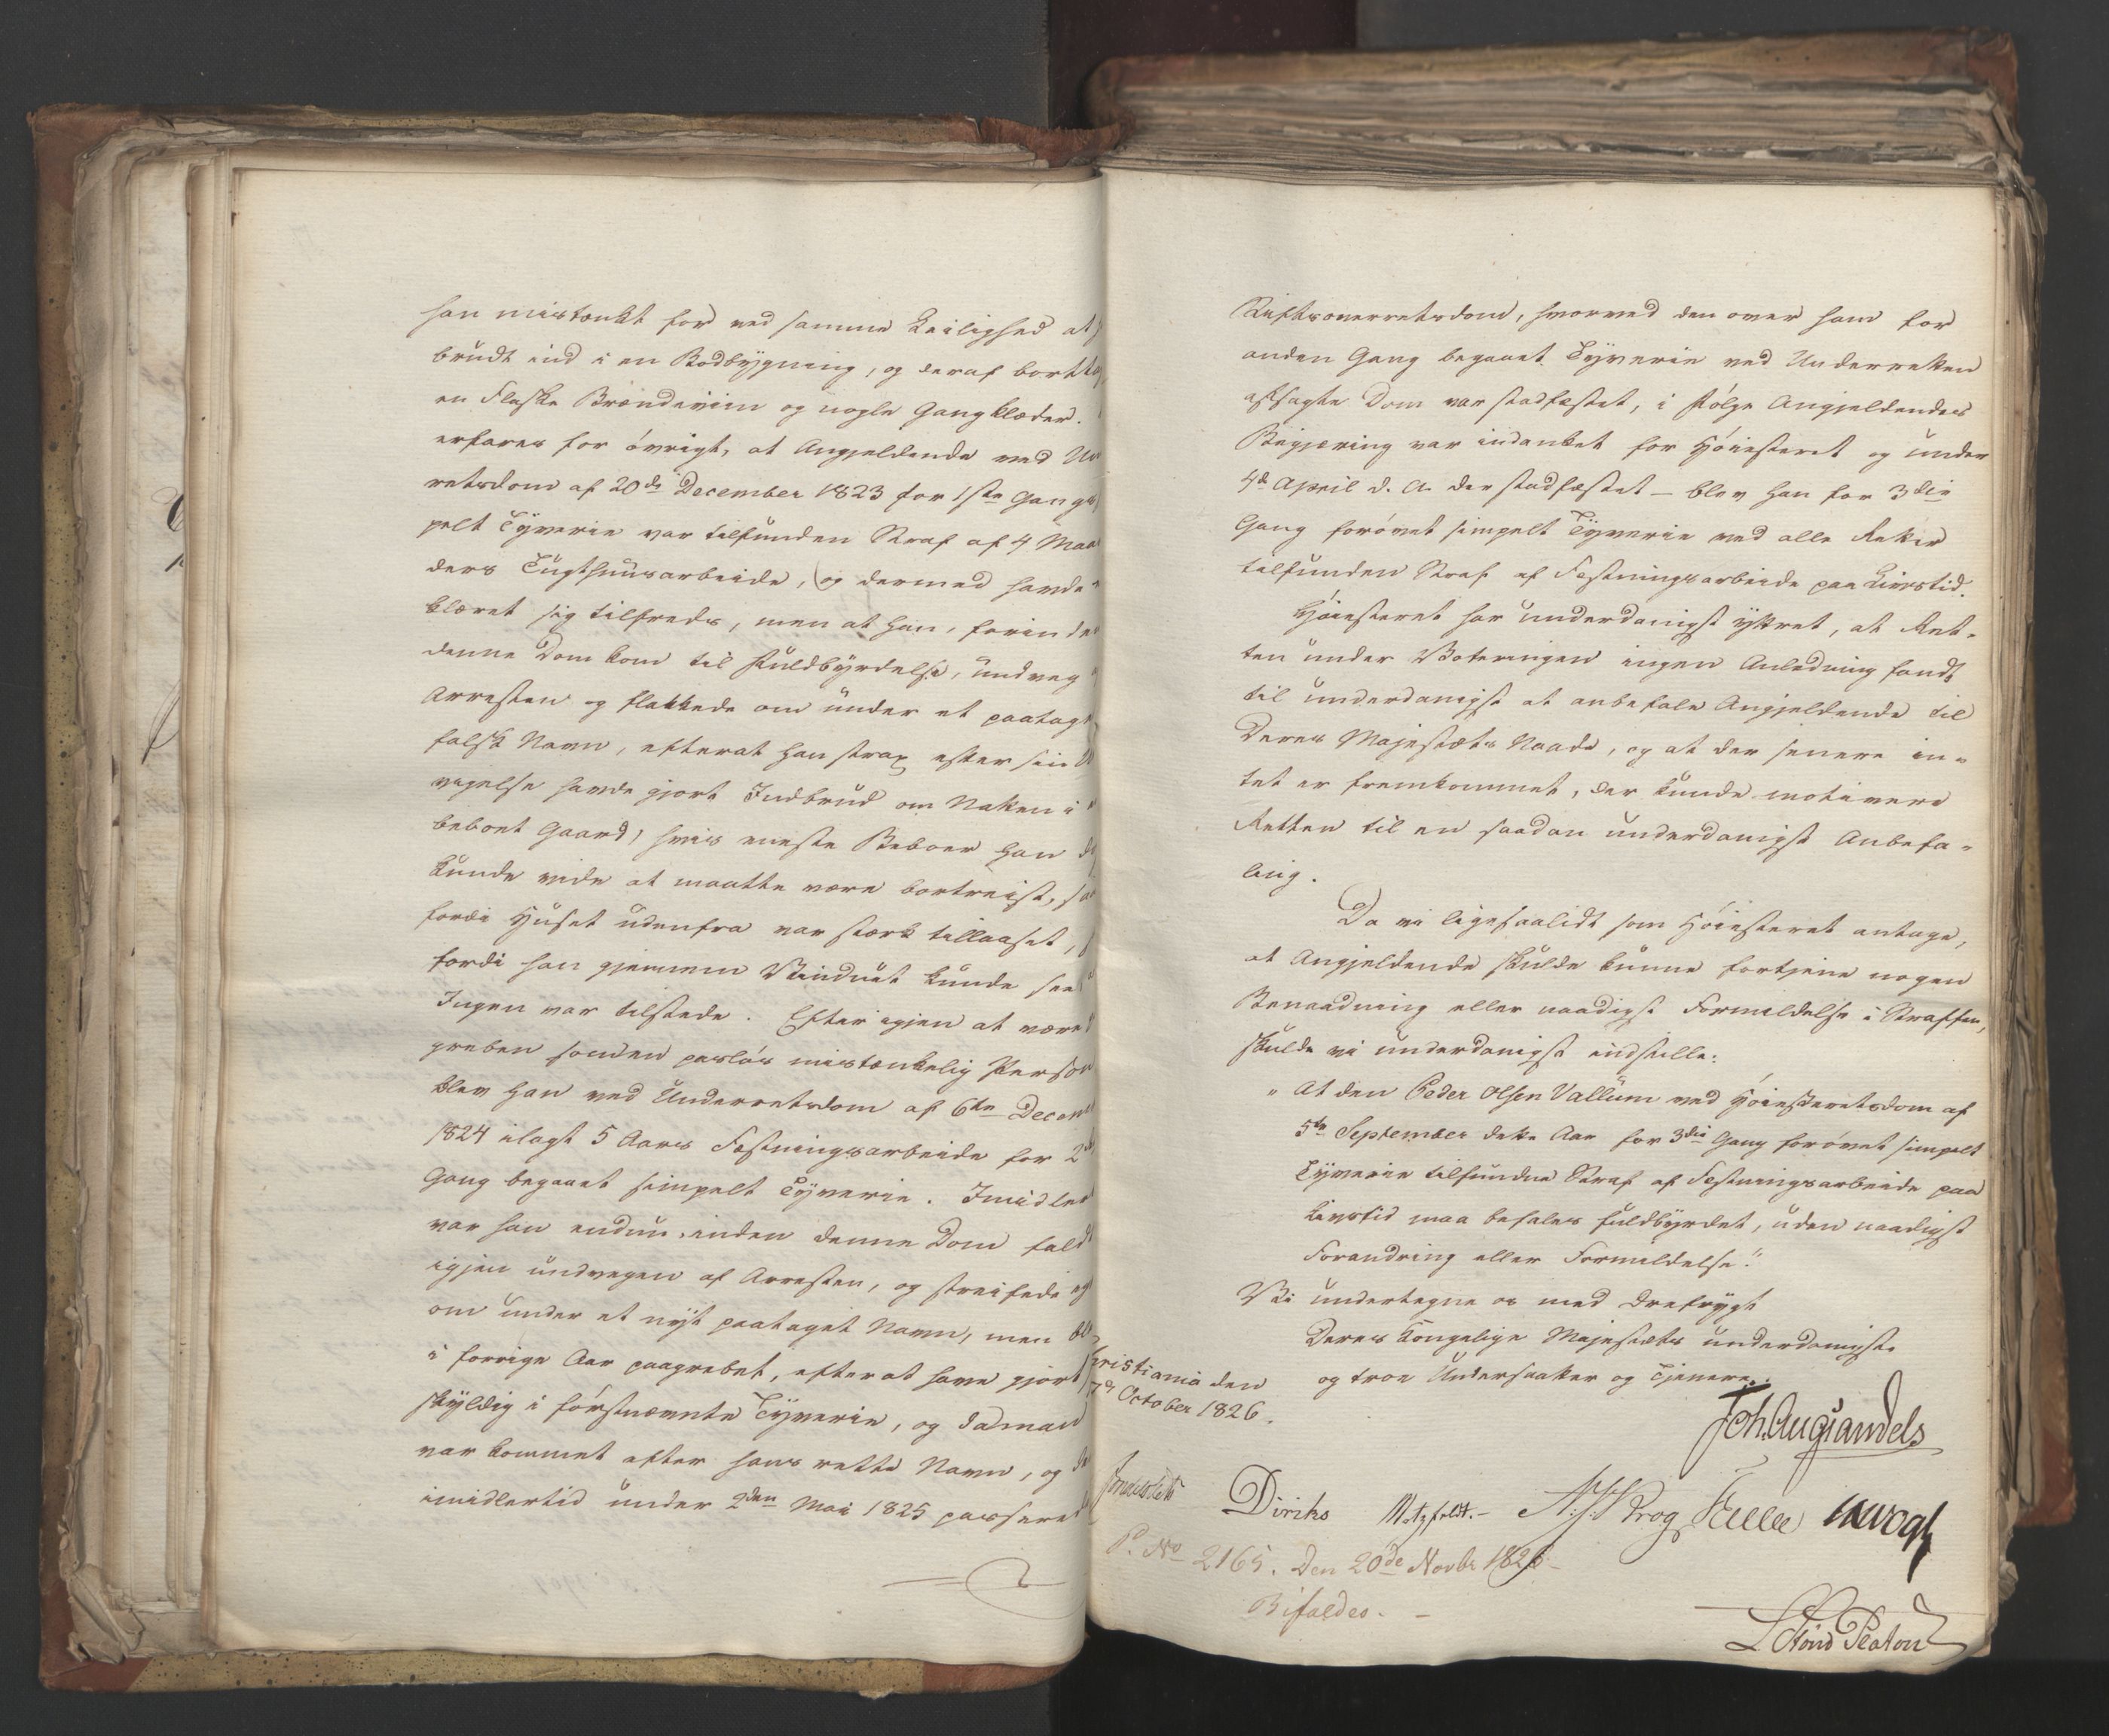 han mistænkt for ved samme Leilighed at
brudt ind i en Bodbygning, og deraf bortta
en Flaske Brændeviin og nogle Gangklæder.
erfares for øvrigt, at Angjeldende ved Un
retsdom af 20de December 1823 for 1ste Gang
pelt Tyverie var tilfunden Straf af 4 Maa
ders Tugthuusarbeide, og dermed havde
klæret sig tilfreds, men at han, forinden
denne Dom kom til Fuldbyrdelse, undveg
Arresten og flakkede om under et paataget
falsk Navn, efterat han strax efter sin U
vigelse havde gjort Indbrud om Natten i
beboet Gaard, hvis eneste Beboer han
kunde vide at maatte være bortreist, saa
fordi Huset udenfra var stærk tillaaset,
fordi han gjennem Vinduet kunde see
Ingen var tilstede. Efter igjen at være
greben som en pasløs mistænkelig Person
blev han ved Underretsdom af 6te Decem
1824 ilagt 5 Aars Fæstningsarbeide for 2
Gang begaaet simpelt Tyverie. Imidler
var han endnu, inden denne Dom faldt
igjen undvegen af Arresten, og streifede
om under et nyt paataget Navn, men ble
i forrige Aar paagrebet, efterat have gjort
skyldig i førstnævnte Tyverie, og da man
var kommet efter hans rette Navn, og de
imidlertid under 2den Mai 1825 passerede
Stiftsoverretsdom, hvorved den over ham for
anden Gang begaaet Tyverie ved Underretten
afsagte Dom var stadfæstet, i Følge Angjeldendes
Begjæring var indanket for Høiesteret og under
4de April d. A. der stadfæstet – blev han for 3die
Gang forøvet simpelt Tyverie ved alle Retter
tilfunden Straf af Fæstningsarbeide paa Livstid.
Høiesteret har underdanigst yttret, at Ret-
ten under Voteringen ingen Anledning fandt
til underdanigst at anbefale Angjeldende til
Deres Majestæts Naade, og at der senere in-
tet er fremkommet, der kunde motivere
Retten til en saadan underdanigst Anbefa-
ling.
Da vi ligesaalidt som Høiesteret antage,
at Angjeldende skulde kunne fortjene nogen
Benaadning eller naadigst Formildelse i Straffen,
skulde vi underdanigst indstille:
" At den Peder Olsen Vallum ved Høiesteretsdom af
5te September dette Aar for 3die Gang forøvet simpelt
Tyverie tilfundne Straf af Fæstningsarbeide paa
Livstid maa befales fuldbyrdet, uden naadigst
Forandring eller Formildelse."
Vi undertegne os med Ærefrygt
Deres Kongelige Majestæts underdanigste
og troe Undersaatter og Tjenere.
hristiania den
7de October 1826.
Joh. Aug. Sandels
Diriks Motzfeldt. – Krog Fasting
P. No 2165. Den 20de Novbr 1826 –
Bifaldes. –